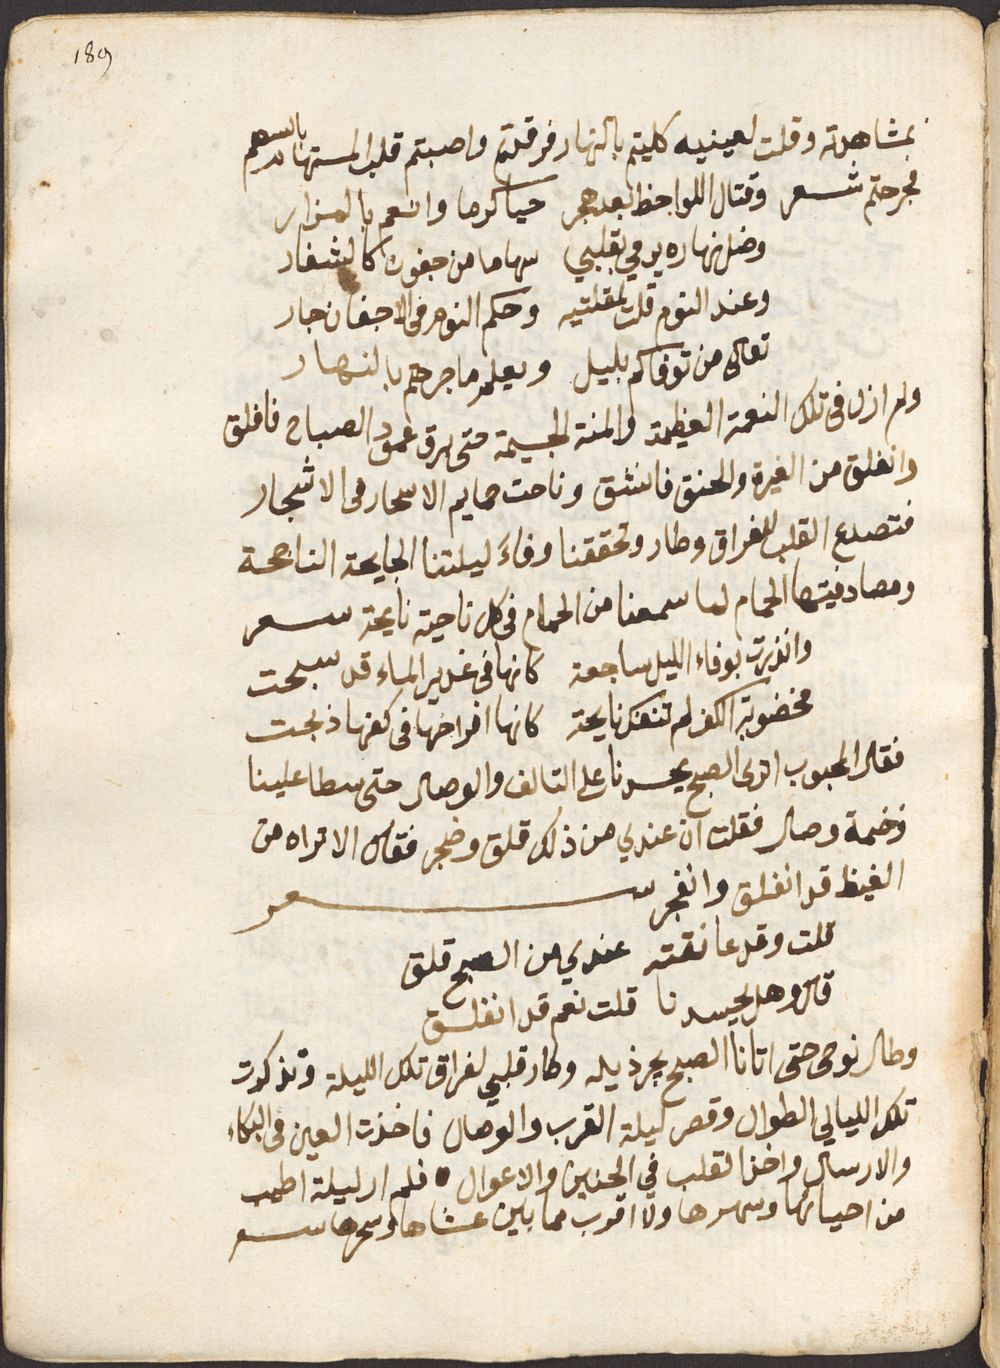 189
بمشاهدته وقلت لعينيه كليتم بالنهار فرقدتم واصبتم قلب المستهام بالسهم
فجرحتم شعر وقتال اللواحظ بعد هجر حيا كرما وانعم بالمزار
وضل نهاره يرمي بقلبي سهاما من جفون كالشفار
وعند النوم قلت لمقلتيه وحكم النوم في الاجفان جار
تعالى من توفاكم بليل ويعلم ما جرحتم بالنهار
ولم ازل في تلك النعمة العظيمة والمنة الجسيمة حتى برق عمود الصباح فاقلق
وانفلق من الغيرة والحنق فانشق وناحت حمايم الاسحار في الاشجار
فتصدع القلب للفراق وطار وتحققنا وفاة ليلتنا الجايحة الناجحة
ومصادفيتها الحمام لما سمعنا من الحمام في كل ناحية نايحة شعر
وانذرت بوفاء الليل ساجعة كانها في غدير الماء قد سبحت
مخضوبة الكف لم تنفك نايحة كانها افراخها في كفها ذبحت
فقال المحبوب اترى الصبح يحسدنا على التالف والوصال حتى سطا علينا
وصال فقلت ان عندي من ذلك قلق وضجر فقال الا تراه من
الغيظ قد انفلق وانفجر شعر
قلت وقد عانقته عندي من الصبح قلق
قال وهل يحسدنا قلت نعم قد انفلق
وطال نوحى حتى اتانا الصبح يجر ذيله وطار قلبي لفراق تلك الليلة وتذكرت
تلك الليالي الطوال وقصر ليلة القرب والوصال فاخذت العين في البكاء
والارسال واخذ القلب في الحنين والاعوال فلم ار ليلة اطيب
من احيائها وسهرها ولا اقرب مما بين عشاها وسحرها شعر